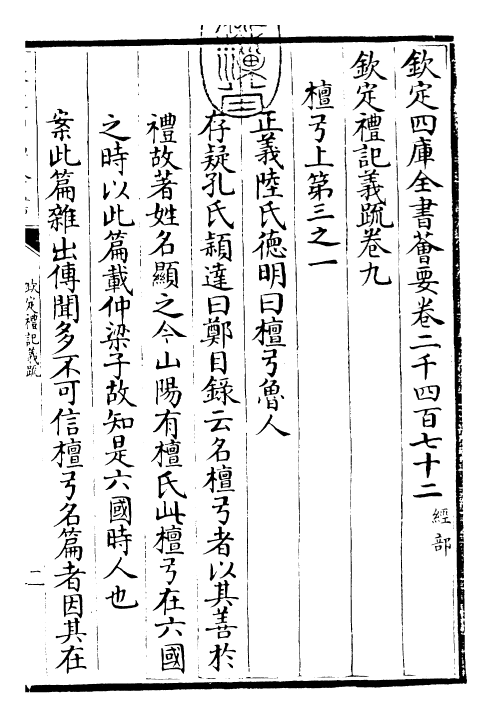 欽定四庫全書薈要卷二千四百七十二 經部
欽定禮記義疏卷九
檀弓上第三之一
正義陸氏德明曰檀弓魯人
存疑孔氏穎達曰鄭目錄云名檀弓者以其善於
禮故著姓名顯之今山陽有檀氏此檀弓在六國
之時以此篇載仲梁子故知是六國時人也
案此篇雜出傳聞多不可信檀弓名篇者因其在
欽定禮記義疏